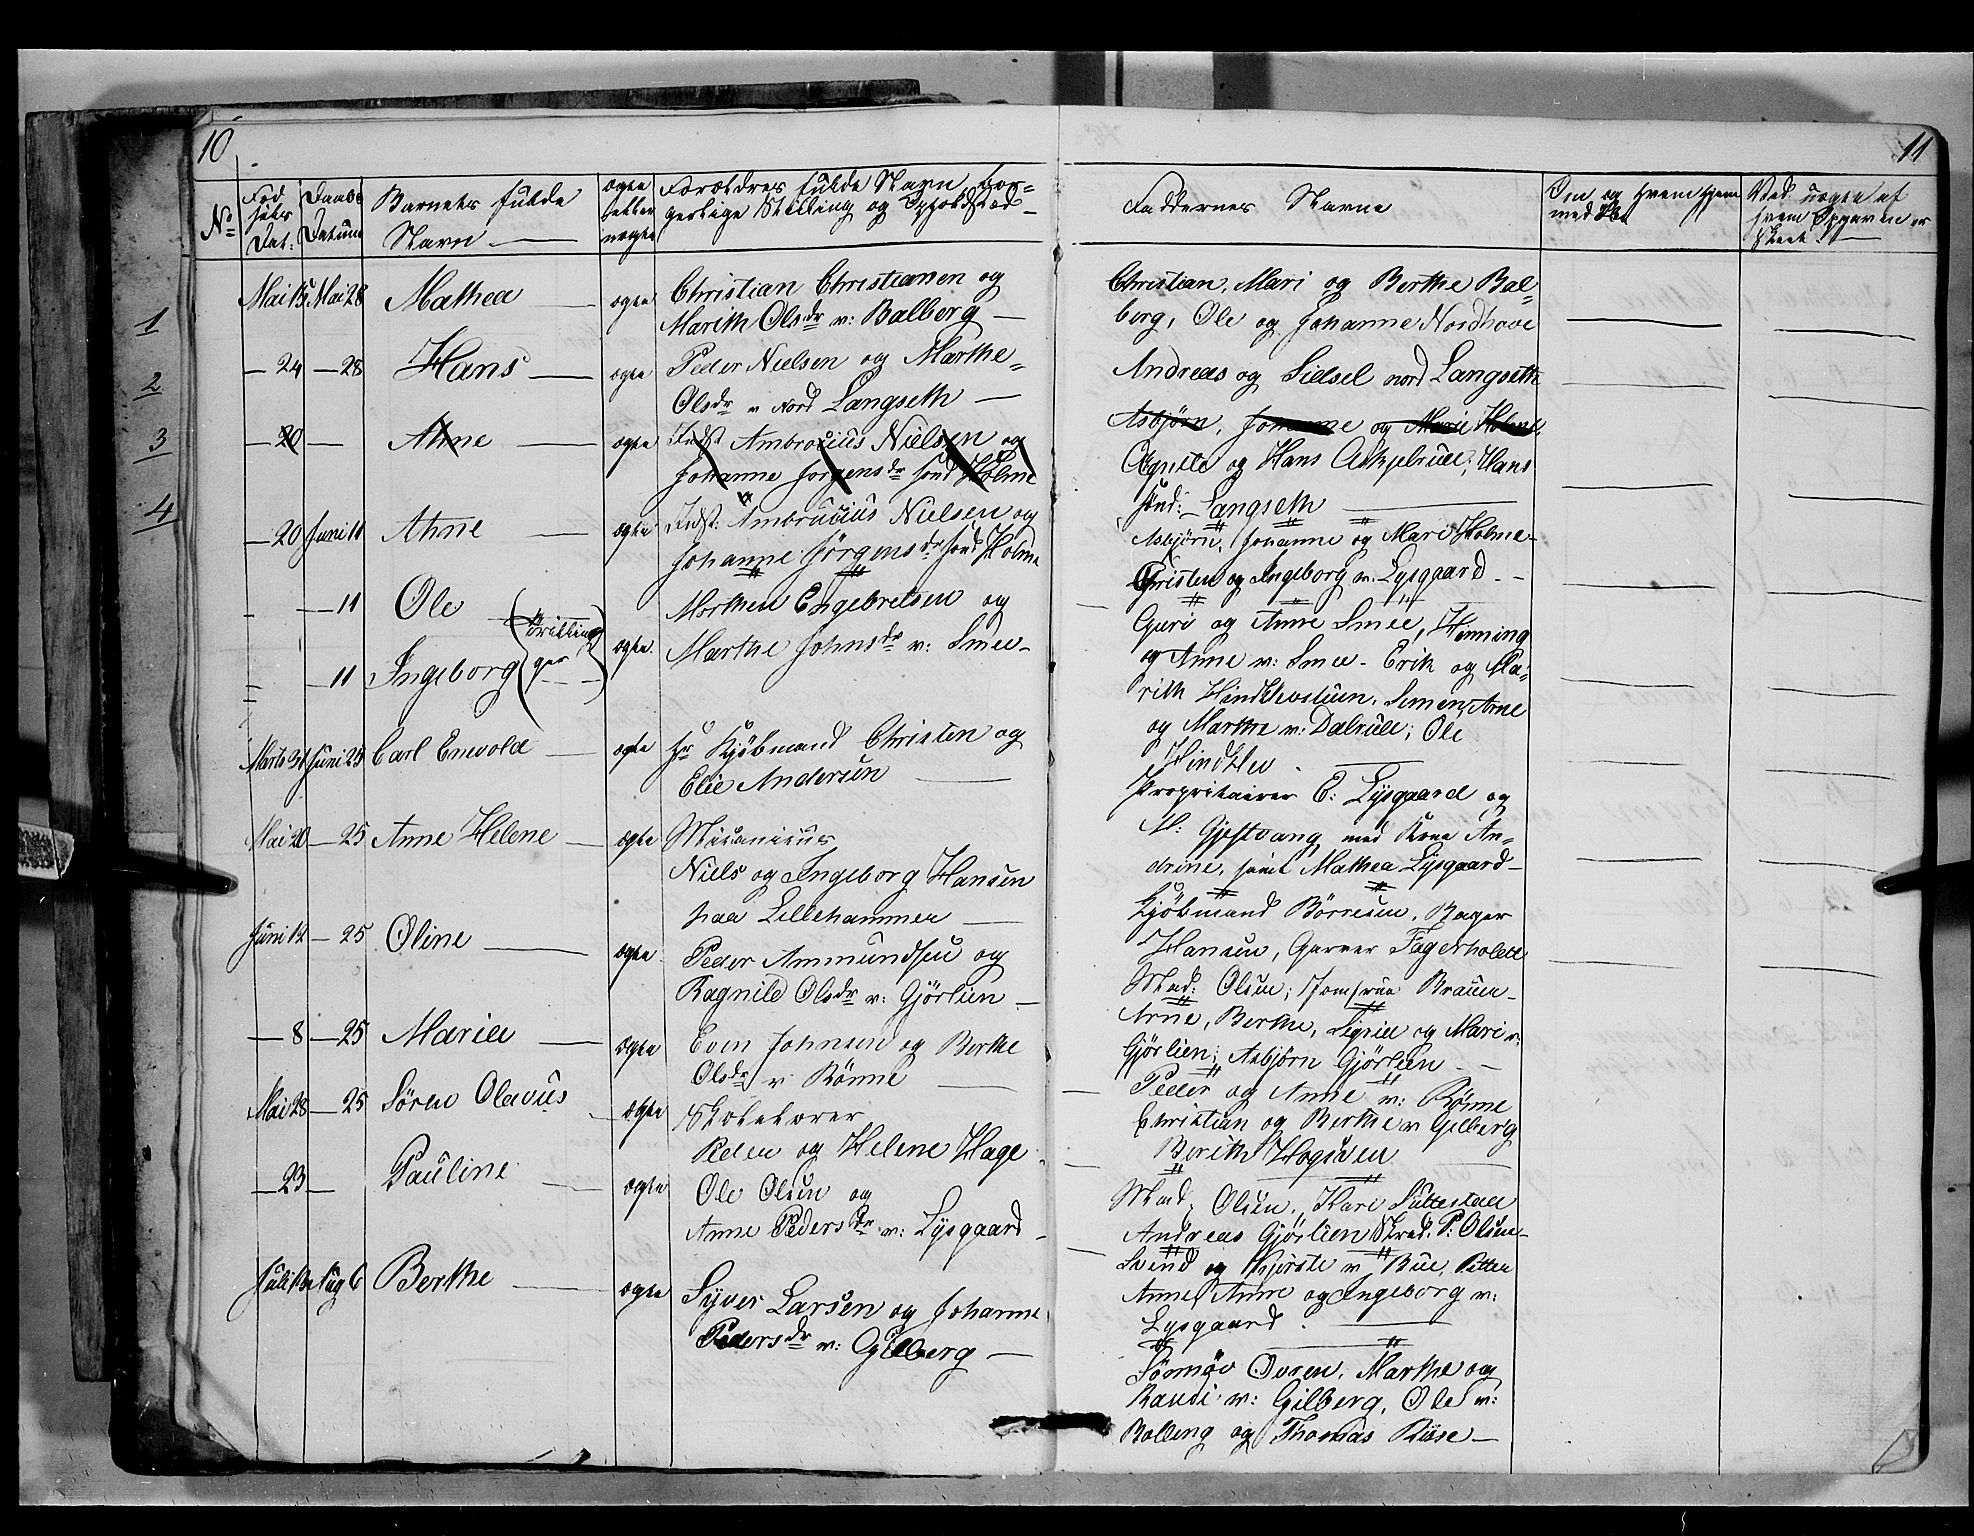 10
No
Fød
sels
Dat:
Daabs
Datum
Barnets fulde
Navn
ægte
eller
uægte
Forældres fulde Navn bor=
gerlige Stilling og Opholdsted
Mai 15 Mai 28 Mathea ægte Christian Christiansen og
Marith Olsdr v: Balberg
24 28 Hans ægte Peder Nielsen og Marthe
Olsdr v Nord Langseth
20 Ahne ægte Indst Ambrosius Nielsen og
Johanne Jørgensdr sønd Holme
20 Juni 11 Ahne ægte Indst: Ambrusius Nielsen og
Johanne Jørgensdr sønd Holme
11 Ole Morthen Engebretsen og
11 Ingeborg ægte Marthe Johnsdr v: Smee
Marts 31 Juni 25 Carl Enevold ægte Hr Kjøbmand Christen og
Elie Andersen
Mai 20 25 Anne Helene ægte
Niels og Ingeborg Hansen
paa Lillehammer
Juni 12 25 Oline ægte Peder Ammundsen og
Ragnild Olsdr v: Gjørlien
8 25 Mariee ægte Even Johnsen og Berthe
Olsdr v Rønne
Mai 28 25 Søren Olavus ægte Skolelærer
Peder og Helene Hage
23 Pauline ægte Ole Olsen og
Anne Pedersdr v: Lysgaard
Juli 12 Aug 6 Berthe ægte Syver Larsen og Johanne
Pedersdr v: Gilberg
1
2
3
4
11
Faddernes Navne
Om og hvem hjem
med
Ved uægte af
hvem Opgaven er
skeet
Christian, Mari og Berthe Bal=
berg, Ole og Johanne Nordhove
Andreas og Sidsel nord Langseth
Asbjørn, Johanne og Marie Holme
Agnethe og Hans Askjelrud, Hans
sønd: Langseth
Asbjørn, Johanne og Mari Holme
Christen og Ingeborg v. Lysgaard
Guri og Anne Smee, Henning
og Anne v: Smee. Erik og Ma=
rith Simen, Arne
og Marthe v: Dalrud; Ole
Proprietairer E: Lysgaard og
M: Gjestvang med Kone An=
drine, samt Mathea Lysgaard
Kjøbmand Børresen, Bager
Hansen, Garver Fagerholdt
Mad: Olsen; Jomfrue Bruun
Arne, Berthe, Sigrid og Mari v:
Gjørlien; Asbjørn Gjørlien
Peder og Anne v: Rønne
Christian og Berthe v Gilberg
Berith
Mad. Olsen, Kari Suttestad
Andreas Gjørlien P. Olsen
Svend og Kjerste v Bue, Petter
Anne, Anne og Ingeborg v:
Lysgaard
Sønnøv Ovren, Marthe og
Randi v: Gilberg, Ole v:
Rolleng og Thomas Riise